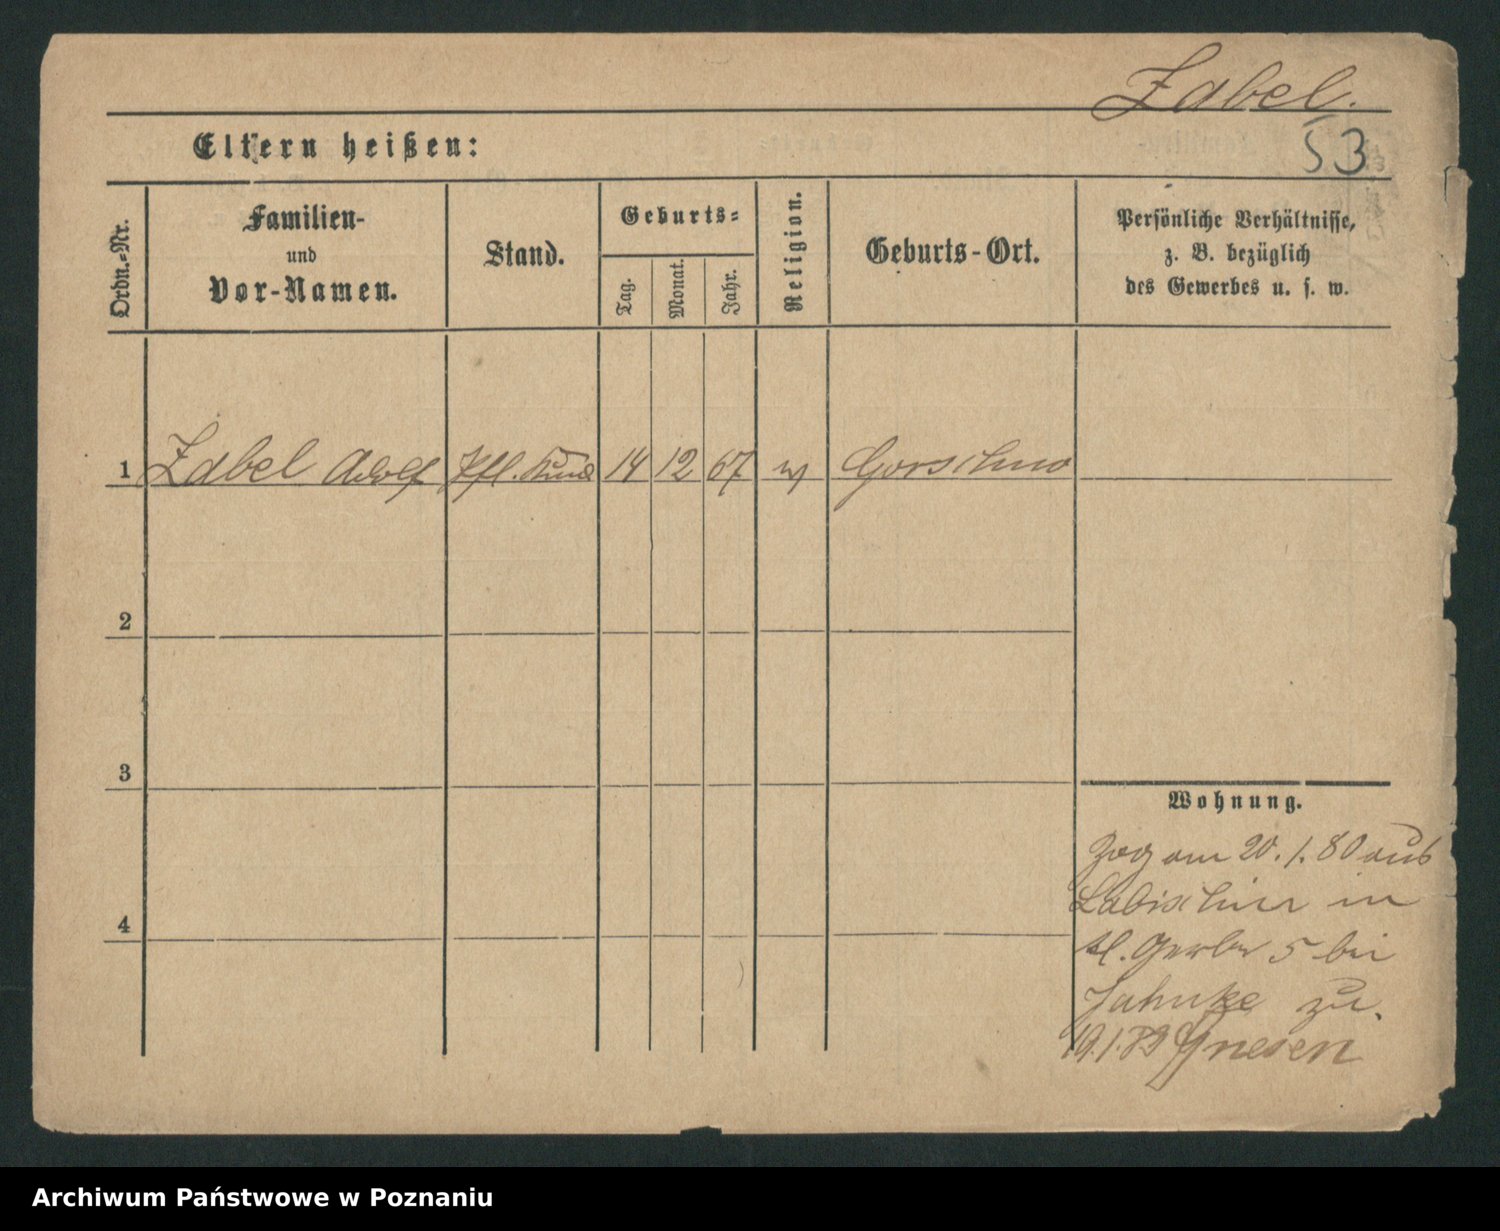 Zabel.
53
Eltern heißen:
Ordn.-Nr.
Familien-
und
Vor-Namen.
Stand.
Geburts-
Tag.
Monat.
Jahr.
Religion.
Geburts-Ort.
Persönliche Verhältnisse,
z. B. bezüglich
des Gewerbes u. s. w.
1 Zabel Adolf Pfl. Kind 14 12 67 Gorschno
2
3
4
Wohnung.
Zog am 20. 1. 80 aus
Labischin in
kl. Gerber 5 bei
Jahnke zu.
19.1.89 Gnesen
Archiwum Państwowe w Poznaniu